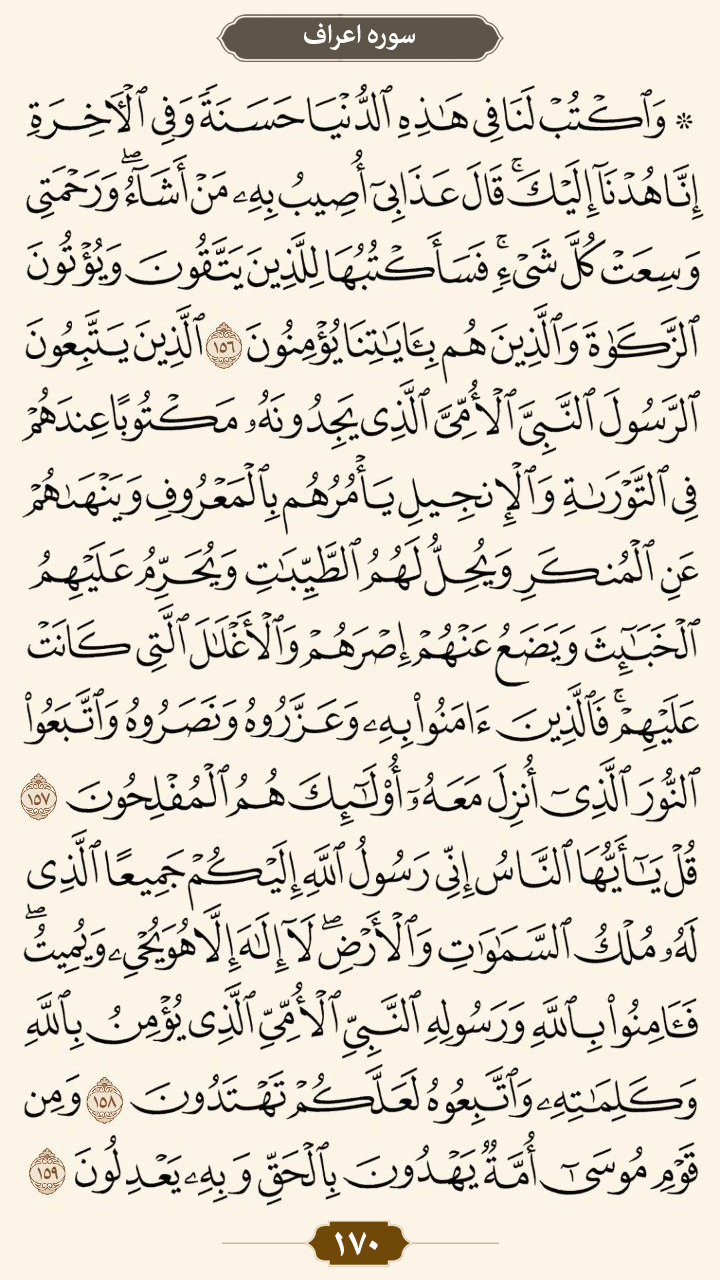 سوره اعراف
* وَٱكۡتُبۡ لَنَا فِي هَٰذِهِ ٱلدُّنۡيَا حَسَنَةٗ وَفِي ٱلۡأٓخِرَةِ
إِنَّا هُدۡنَآ إِلَيۡكَۚ قَالَ عَذَابِيٓ أُصِيبُ بِهِۦ مَنۡ أَشَآءُۖ وَرَحۡمَتِي
وَسِعَتۡ كُلَّ شَيۡءٖۚ فَسَأَكۡتُبُهَا لِلَّذِينَ يَتَّقُونَ وَيُؤۡتُونَ
ٱلزَّكَوٰةَ وَٱلَّذِينَ هُم بِـَٔايَٰتِنَا يُؤۡمِنُونَ ١٥٦ ٱلَّذِينَ يَتَّبِعُونَ
ٱلرَّسُولَ ٱلنَّبِيَّ ٱلۡأُمِّيَّ ٱلَّذِي يَجِدُونَهُۥ مَكۡتُوبًا عِندَهُمۡ
فِي ٱلتَّوۡرَىٰةِ وَٱلۡإِنجِيلِ يَأۡمُرُهُم بِٱلۡمَعۡرُوفِ وَيَنۡهَىٰهُمۡ
عَنِ ٱلۡمُنكَرِ وَيُحِلُّ لَهُمُ ٱلطَّيِّبَٰتِ وَيُحَرِّمُ عَلَيۡهِمُ
ٱلۡخَبَٰٓئِثَ وَيَضَعُ عَنۡهُمۡ إِصۡرَهُمۡ وَٱلۡأَغۡلَٰلَ ٱلَّتِي كَانَتۡ
عَلَيۡهِمۡۚ فَٱلَّذِينَ ءَامَنُواْ بِهِۦ وَعَزَّرُوهُ وَنَصَرُوهُ وَٱتَّبَعُواْ
ٱلنُّورَ ٱلَّذِيٓ أُنزِلَ مَعَهُۥٓ أُوْلَٰٓئِكَ هُمُ ٱلۡمُفۡلِحُونَ ١٥٧
قُلۡ يَٰٓأَيُّهَا ٱلنَّاسُ إِنِّي رَسُولُ ٱللَّهِ إِلَيۡكُمۡ جَمِيعًا ٱلَّذِي
لَهُۥ مُلۡكُ ٱلسَّمَٰوَٰتِ وَٱلۡأَرۡضِۖ لَآ إِلَٰهَ إِلَّا هُوَ يُحۡيِۦ وَيُمِيتُۖ
فَـَٔامِنُواْ بِٱللَّهِ وَرَسُولِهِ ٱلنَّبِيِّ ٱلۡأُمِّيِّ ٱلَّذِي يُؤۡمِنُ بِٱللَّهِ
وَكَلِمَٰتِهِۦ وَٱتَّبِعُوهُ لَعَلَّكُمۡ تَهۡتَدُونَ ١٥٨ وَمِن
قَوۡمِ مُوسَىٰٓ أُمَّةٞ يَهۡدُونَ بِٱلۡحَقِّ وَبِهِۦ يَعۡدِلُونَ ١٥٩
١٧٠